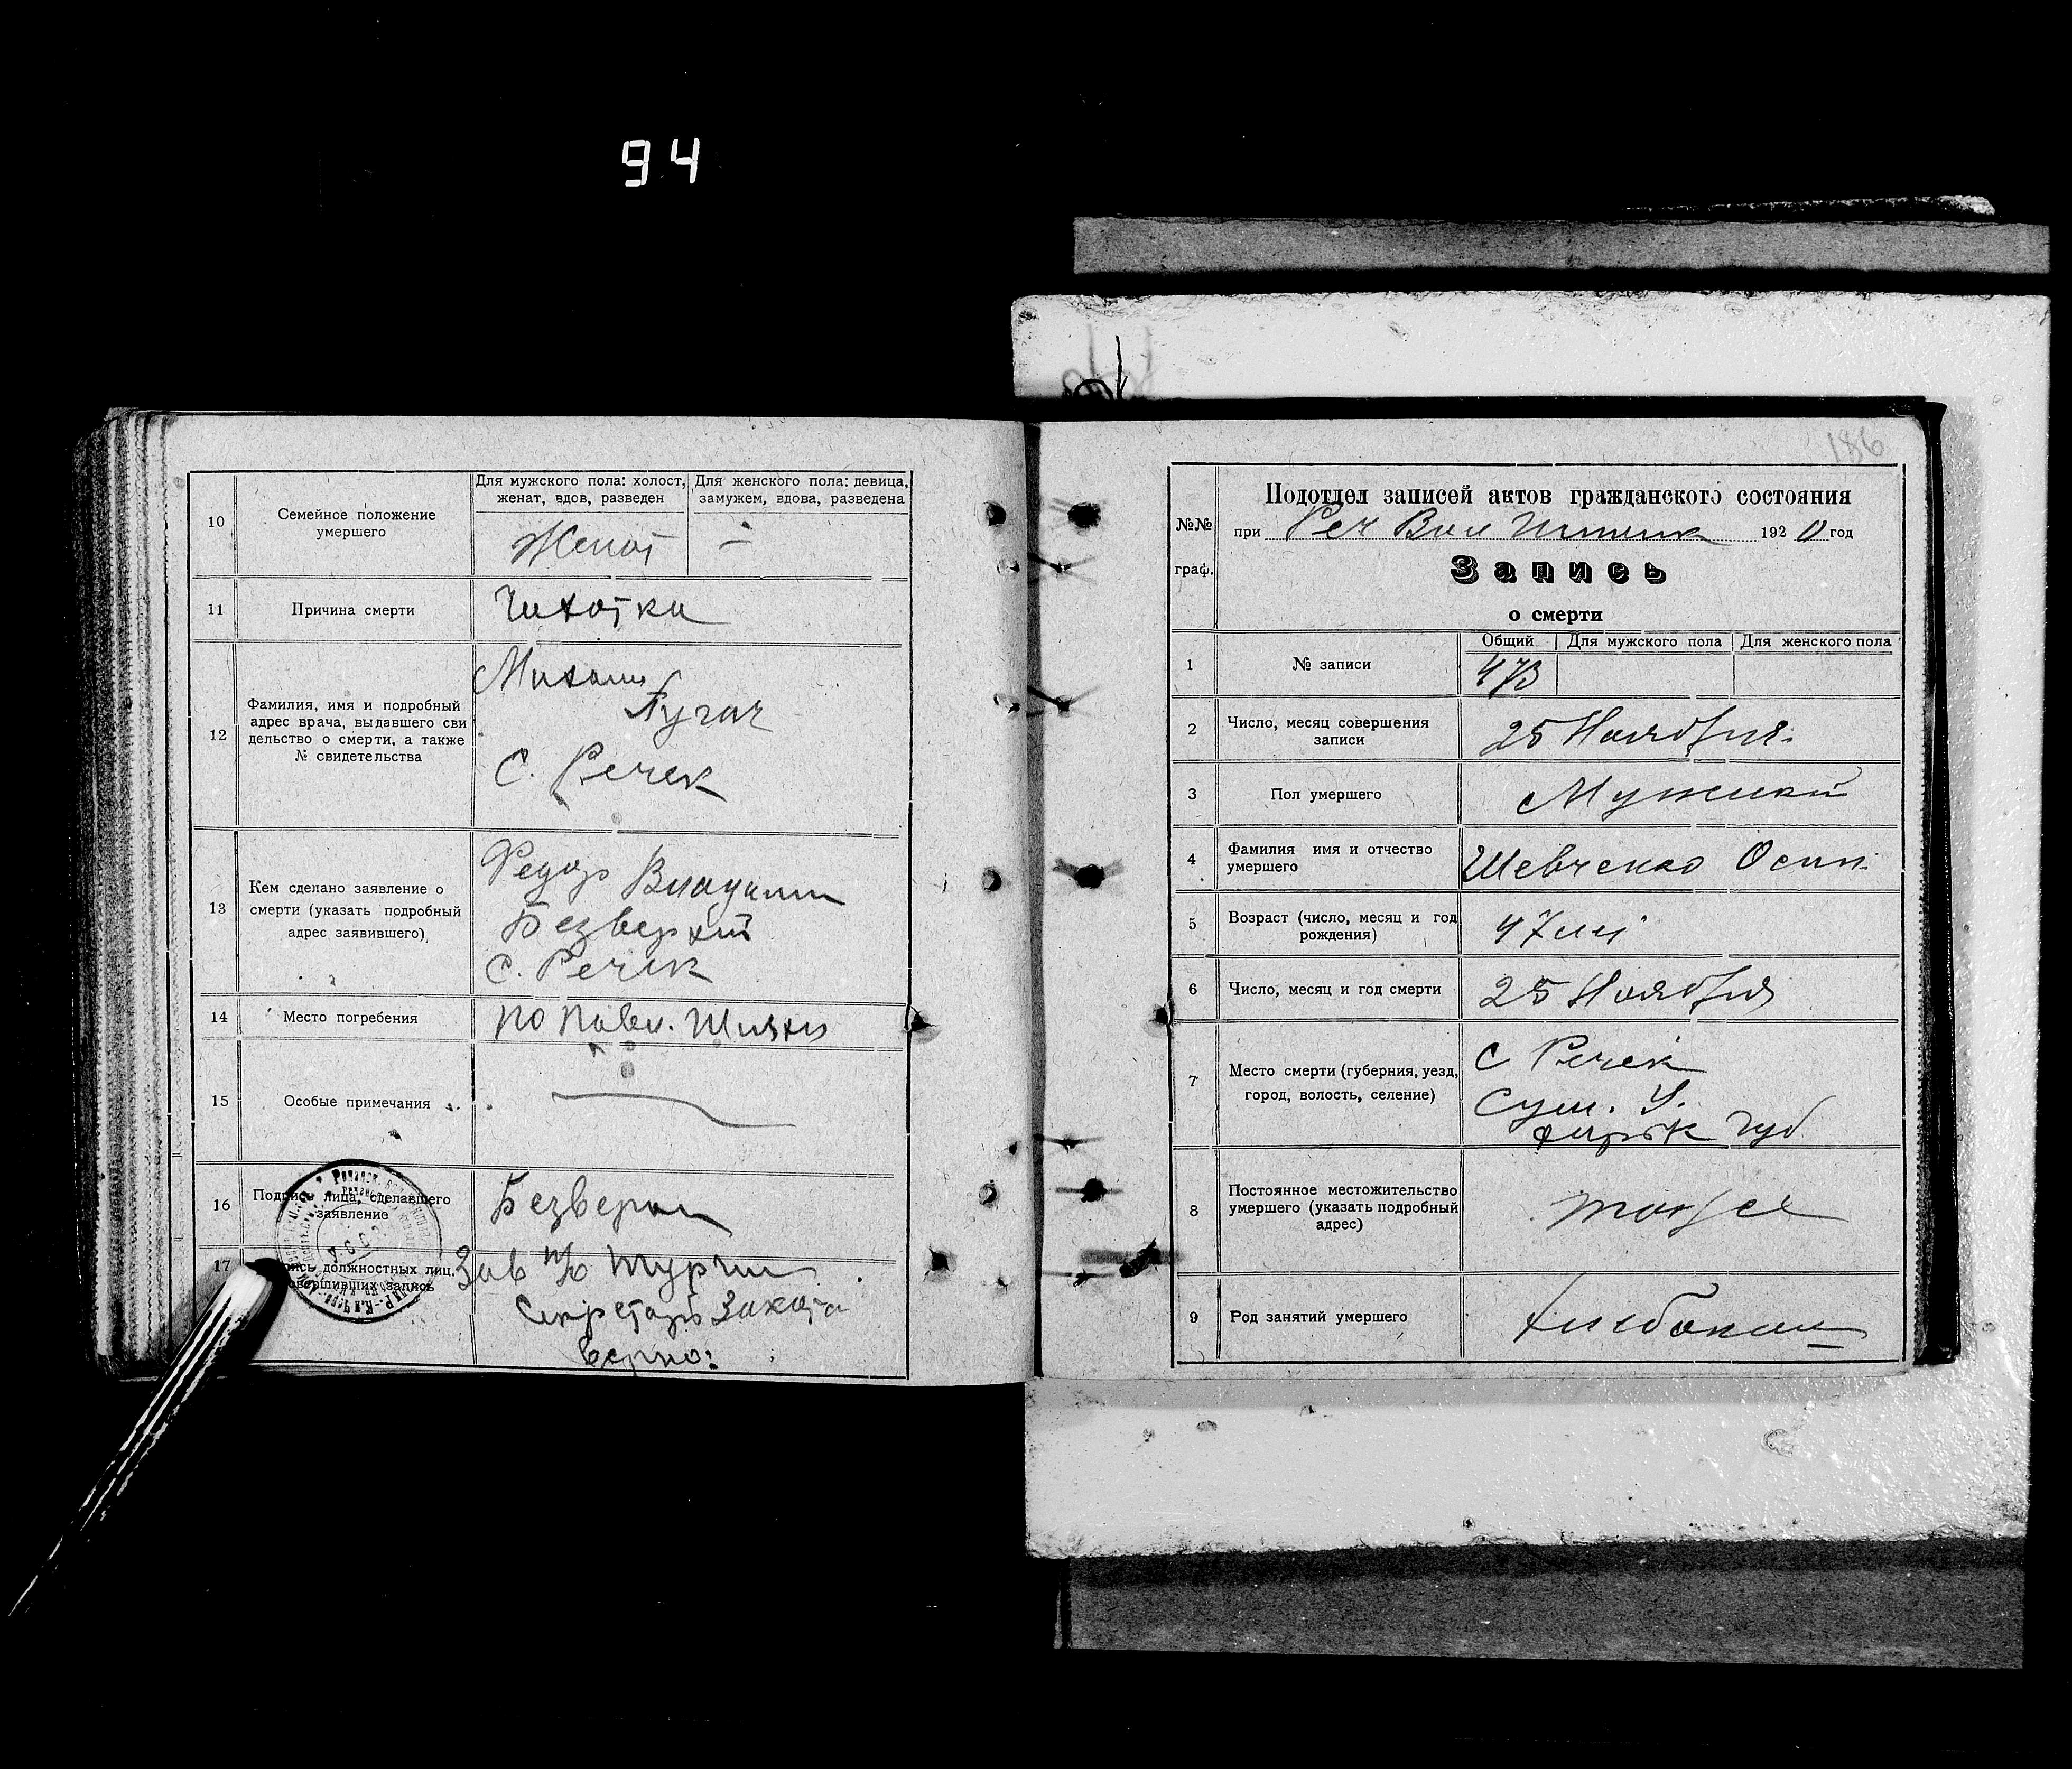 94
10
Семейное положение
умершего
Для мужского пола: холост,
женат, вдов, разведен
Для женского пола: девица,
замужем, вдова, разведена
Женат
—
11
Причина смерти
Чихотка
12
Фамилия, имя и подробный
адрес врача, выдавшего сви
дельство о смерти, а также
№ свидетельства
Михаил
Пугач
С. Речек
13
Кем сделано заявление о
смерти (указать подробный
адрес заявившего)
Федор
Безверхий
С. Речек
14
Место погребения
по
15
Особые примечания
16
Подпись лица, сделавшего
заявление
Безверхий
17
должностных лиц,
совершивших запись
Зав п/о
Секретарь
верно:
186
№№
граф.
Подотдел записей актов гражданского состояния
при Реч Вол 1920 год
Запись
о смерти
Общий
Для мужского пола
Для женского пола
1
№ записи
473
2
Число, месяц совершения
записи
25 Ноября
3
Пол умершего
Мужский
4
Фамилия имя и отчество
умершего
Шевченко Осип
5
Возраст (число, месяц и год
рождения)
47 лет
6
Число, месяц и год смерти
25 Ноября
7
Место смерти (губерния, уезд,
город, волость, селение)
С Речек
Сум. У.
Харьк губ
8
Постоянное местожительство
умершего (указать подробный
адрес)
9
Род занятий умершего